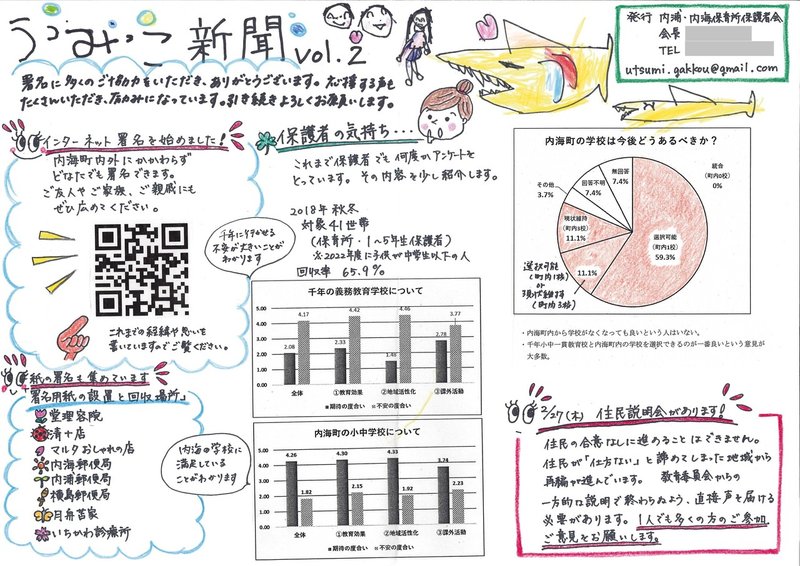 うつみっこ新聞 vol.2
署名に多くのご協力をいただき、ありがとうございます。応援する声も
たくさんいただき、励みになっています。引き続きよろしくお願いします。
発行 内浦・内海保育所保護者会
会長
TEL
utsumi.gakkou@gmail.com
インターネット署名を始めました!
内海町内外にかかわらず
どなたでも署名できます。
ご友人やご家族、ご親戚にも
ぜひ広めてください。
これまでの経緯や思いを
書いていますのでご覧ください。
紙の署名も集めています
「署名用紙の設置と回収場所」
堂理容院
清十店
マルタおしゃれの店
内海郵便局
内浦郵便局
横島郵便局
月舟苦家
いちかわ診療所
保護者の気持ち・・・
これまで保護者でも何度かアンケートを
とっています。その内容を少し紹介します。
2018年 秋冬
対象41世帯
(保育所・1~5年生保護者)
※2022年度に子供が中学生以下の人
回収率 65.9%
千年に行かせる
不安が大きいことが
わかります
千年の義務教育学校について
5.00
4.00
3.00
2.00
1.00
0.00
2.08
4.17
2.33
4.42
1.46
4.46
2.78
3.77
全体
①教育効果
②地域活性化
③課外活動
■期待の度合い ■不安の度合い
内海の学校に
満足している
ことがわかります
内海町の小中学校について
5.00
4.00
3.00
2.00
1.00
0.00
4.26
1.82
4.30
2.15
4.33
1.92
3.74
2.23
全体
①教育効果
②地域活性化
③課外活動
■期待の度合い ■不安の度合い
内海町の学校は今後どうあるべきか?
統合
(町内0校)
0%
無回答
7.4%
回答不明
7.4%
その他
3.7%
現状維持
(町内3校)
11.1%
11.1%
選択可能
(町内1校)
59.3%
選択可能
(町内1校)
or
現状維持
(町内3校)
・内海町内から学校がなくなっても良いという人はいない。
・千年小中一貫教育校と内海町内の学校を選択できるのが一番良いという意見が
大多数。
2/27(木) 住民説明会があります!
住民の合意なしに進めることはできません。
住民が「仕方ない」と諦めてしまった地域から
再編が進んでいます。 教育委員会からの
一方的な説明で終わらぬよう、直接声を届ける
必要があります。1人でも多くの方のご参加、
ご意見をお願いします。